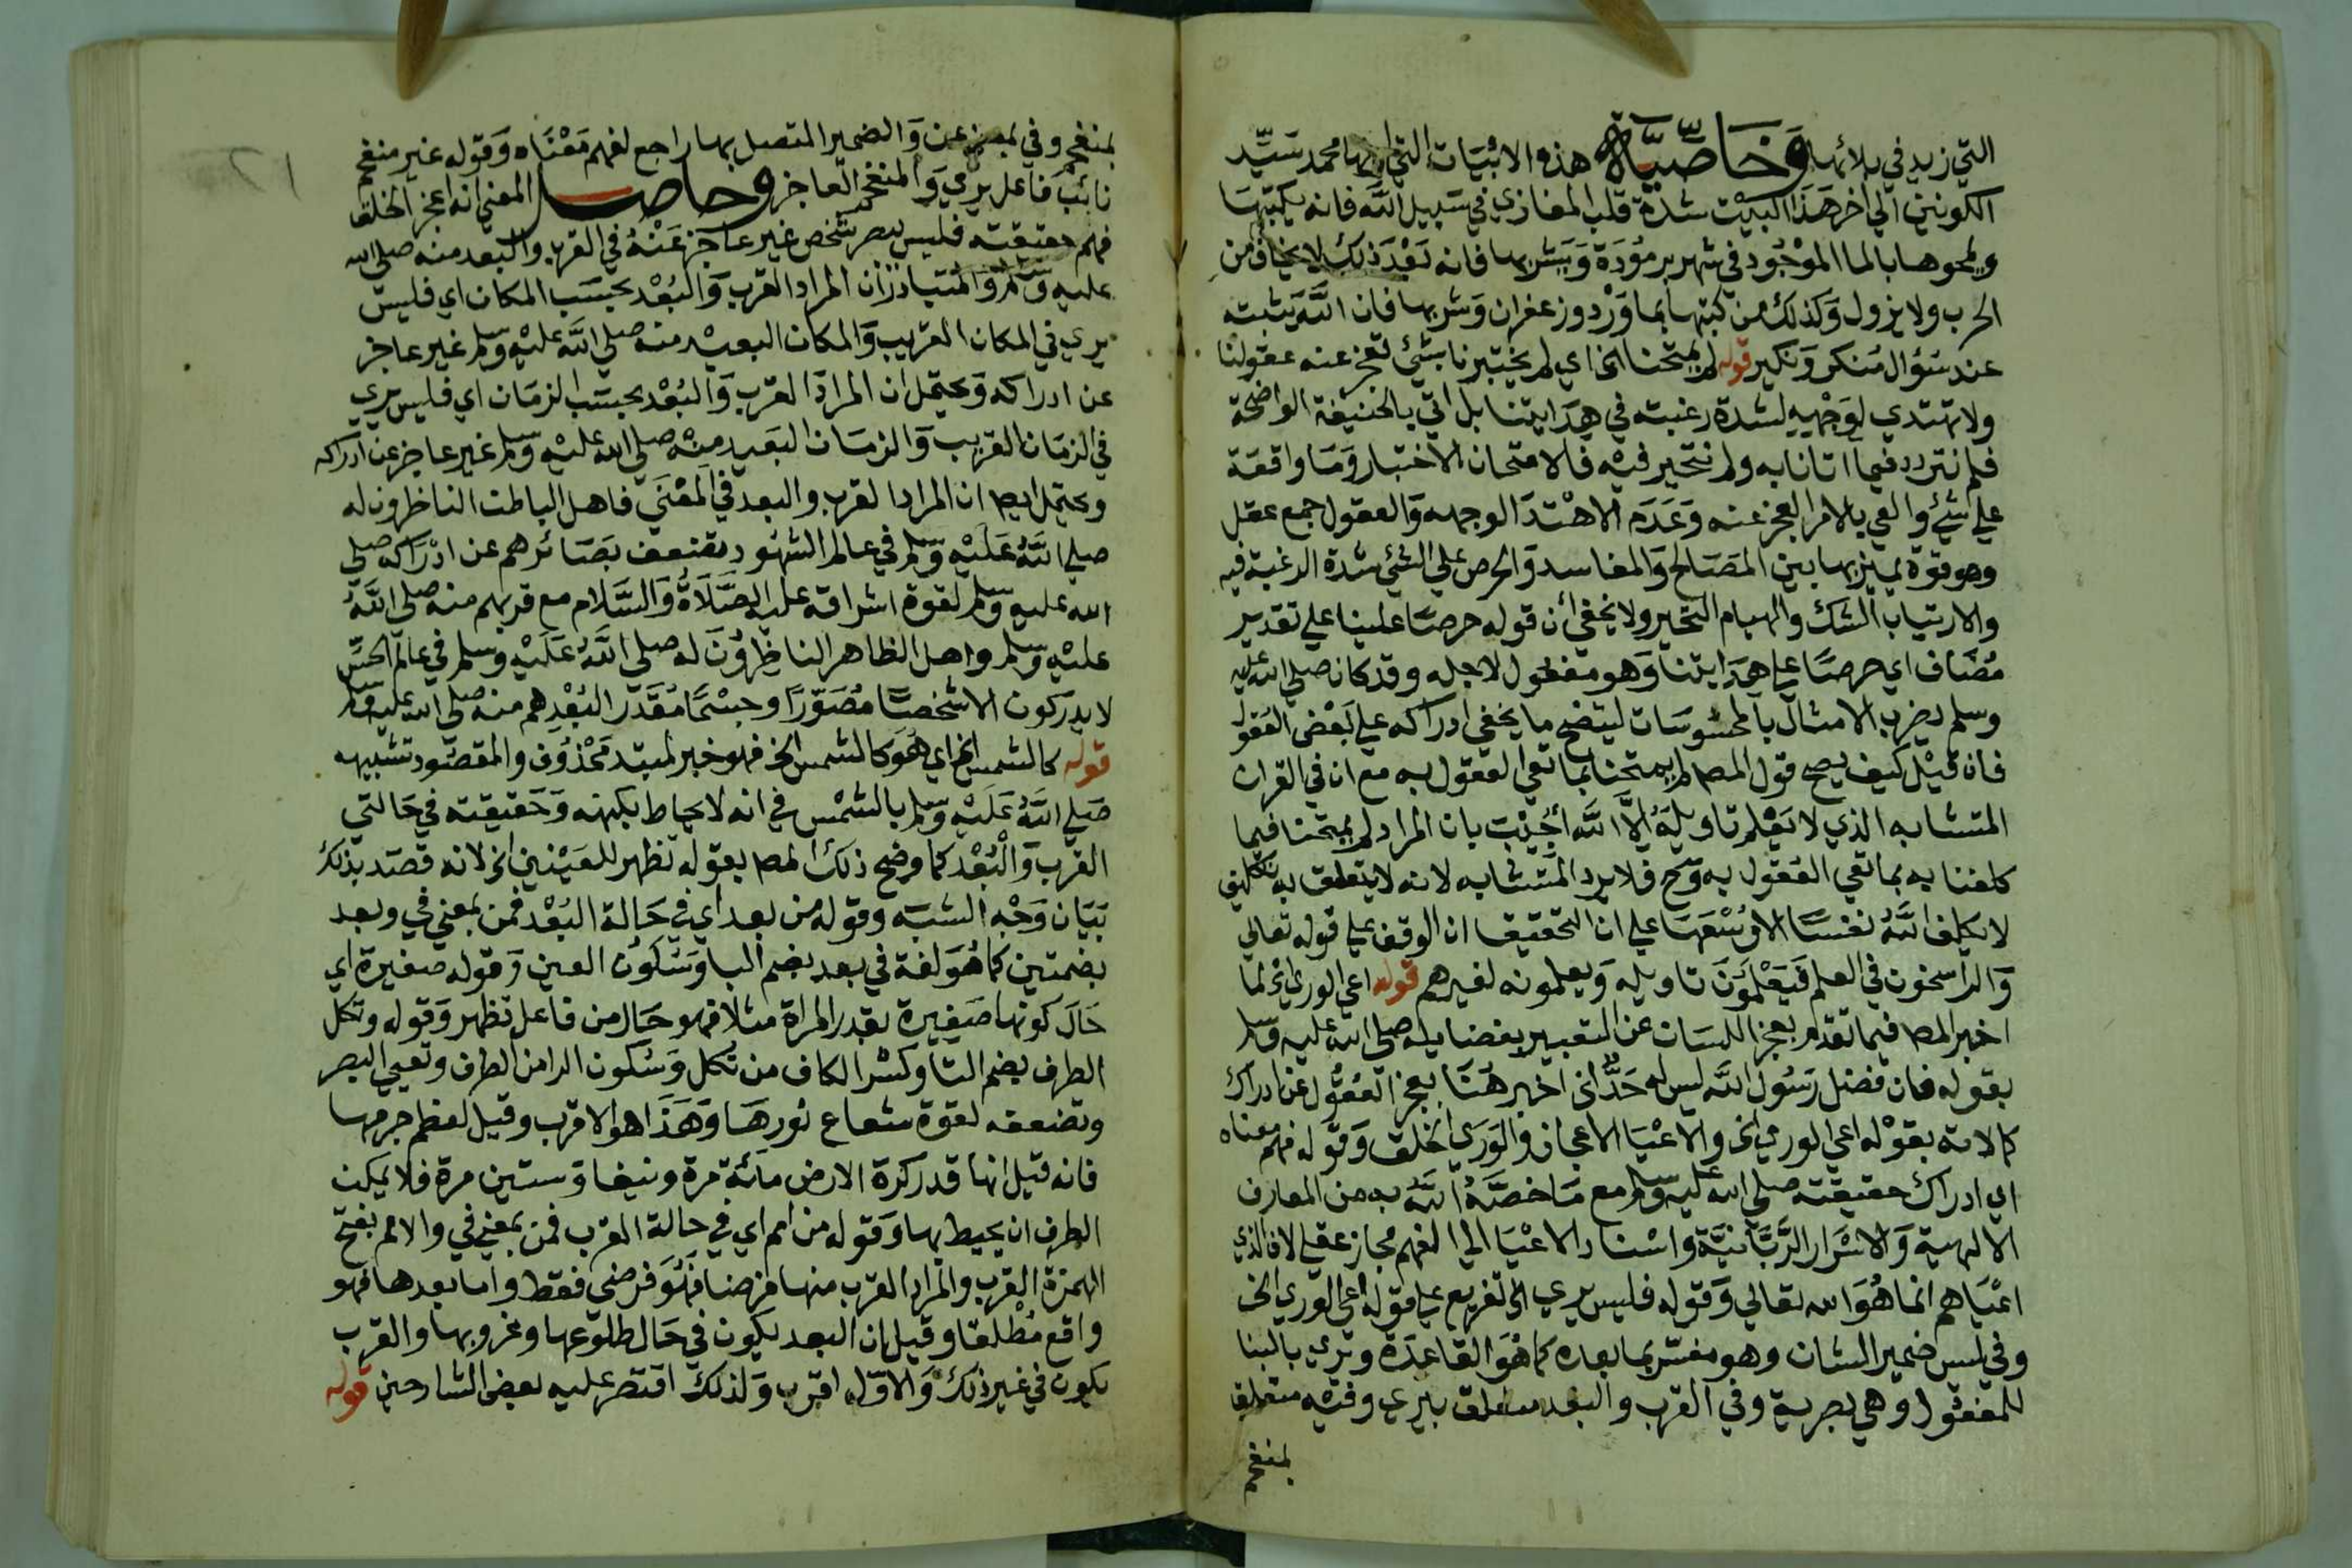 التي زيد في بلائها وَخَاصِّيَّة هذه الابْيَات التي اولها محمد سَيِّد
الكونين الي اخر هَذا البيْت شدة قلب المغازي في سَبيل الله فانه يكتبهَا
ويمحوها بالما الموْجُود في شهر برمُودَة وَيَشربها فانه بَعْدَ ذلك لا يخاف من
الحرب ولا يزول وَكذلك من كتبها بما وَرْد وزعفران وَشربها فان الله يَثبته
عند سُؤال مُنكر وَنكير قوله لم يمتحنا الخ اي لم يختبرنا بشئ تعجز عنه عقولنا
ولا تهتدي لوَجْهه لشدة رغبته في هِدَايتنا بل اتي بالحنيفة الواضحة
فلم نتردد فيما اتانا به ولم نتحير فيْه فالامتحان الاختبار وَمَا واقعَة
علي شئ والعي بالامر العجز عنه وَعَدَم الاهْتدا لوجهه وَالعقول جمع عقل
وهو قوة يميز بها بين المصَالح وَالمفاسد وَالحرص علي الشئ شدة الرغبة فيه
والارتياب الشك والهيام التحير ولا يخفي ان قوله حرصًا علينا علي تقدير
مُضَاف اي حرصًا علي هِدَايتنا وَهو مفعول لاجله وقد كان صلي الله عليه
وسلم يضرب الامثال بالمحسُوسَات ليتضح ما يخفي ادراكه علي بَعْض العُقول
فان قيْل كيف يصح قول المصـ لم يمتحنا بما تعي العقول به مع ان في القران
المتشابه الذي لا يَعْلم تاويلهُ الاَّ الله اُجيْبَ بان المراد لم يمتحنا فيما
كلفنا به بما تعي العُقول به وَح فلا يرد المتَشابه لانه لا يتعلق به تكليف
لا يكلف اللهُ نفسًا الا وُسْعَهَا علي ان التحقيق ان الوقف علي قوله تعالي
وَالراسخون في العلم فَيَعْلمُونَ تاويله وَيعلمونه لغيرهم قوله اعي الوري الخ لما
اخبر المصـ فيما تقدم بعجز اللسَان عن التعبير بفضايله صلي الله عليه وسلم
بقوله فان فضل رَسُول الله ليس له حَدٌّ الخ اخبر هُنَا بعجز العُقول عن ادراك
كمالاته بقوْله اعي الوري الخ والاعْيَا الاعجاز وَالوَرَي الخلق وَقوله فهم معناه
اي ادراك حقيقته صلي الله عليه وسلم مع مَا خصَّهُ اللهُ به من المعارف
الالهية وَالاسْرَار الرَّبَّانيَّة واسْناد الاعْيَا الي الفهم مجاز عقلي لان الذي
اعْيَاهم انما هُوَ الله تعالي وَقوله فليس يري الخ تفريع علي قوله اعي الوري الخ
وفي ليس ضمير الشان وهو مفسّر بما بعده كما هُوَ القاعدَة ويري بالبنا
للمفعُول وهي بصرية وفي القرب والبُعد متعلق بيري وفيْه متعلق
بمنفحم
بمنفحم وفي بمعني عن وَالضمير المتصل بها راجع لفهم مَعْنَاه وَقوله غير منفحم
نائبُ فاعل يري وَالمنفحم العاجز وحاصل المعني انه اعجز الخلق
فهم حقيقته فليس يبصر شخص غير عاجز عَنْهُ في القرب والبعد منه صلي الله
عليه وَسَلم وَالمتبادر ان المراد القرب وَالبُعْد بحسَب المكان اي فليس
يري في المكان القريب وَالمكان البعيْد منه صلي الله عليْه وسلم غير عاجز
عن ادراكه وَيحتمل ان المرادَ القرب وَالبُعْد بحسَب الزمَان اي فليس يري
في الزمَان القريب وَالزمَان البَعيد منْه صلي الله عليْه وسلم غير عاجز عن ادراكه
ويحتمل ايضا ان المراد القرب والبعد في المعْنَي فاهل الباطن الناظرون له
صلي اللهُ عَلَيْه وسلم في عالم الشهُود تضعف بَصَائرهم عن ادْرَاكه صلي
الله عليه وسلم لقوة اشراقه عليه الصَّلاَةُ وَالسَّلام مع قربهم منه صلي اللهُ
عليْه وسلم واهل الظاهر الناظِرُوْنَ له صلي اللهُ عَلَيْه وسلم في عالم الحسِّ
لا يدركون الا شخصًا مُصَوَّرًا وجسْمًا مُقدَّرًا لبُعْدِهم منه صلي الله عليه وسلم
قوله كالشمس الخ اي هُوَ كالشمس الخ فهو خبر لمبتدا مَحْذوْف والمقصُود تشبيهه
صَلي اللهُ عَلَيْه وسلم بالشمْس في انه لا يحاط بكنهه وَحَقيقته في حَالتي
القرب وَالبُعْد كما وضح ذلك المصـ بقوله تظهر للعَيْنين الخ لانه قصَد بذلك
بَيَان وَجْه الشبَه وقوله من بعد اي في حَالة البُعْد فمن بمعني في وبعد
بضمتين كما هُوَ لغة في بعد بضم البا وَسُكُون العين وَقوله صغيرة اي
حَال كونها صَغيرة بقدر المراة مثلا فهو حَال من فاعل تظهر وَقوله وتكل
الطرف بضم التا وكسْر الكاف من تكل وَسُكون الرا من الطرف وتعيي البصر
وتضعفه لقوة شعاع نُورهَا وَهَذَا هو الاقرب وقيل لعظم جرمها
فانه قيل انها قدر كرة الارض مائة مرة ونيفا وَستين مرة فلا يمكن
الطرف ان يحيط بها وَقوله من امم اي في حالة القرب فمن بمعني في والامم بفتح
الهمزة القرب والمراد القرب منها فرضا فَهُوَ فرضي فقط واما بعدها فهو
واقع مُطْلقا وقيل ان البعد يكون في حَال طلوعها وغروبها والقرب
يكون في غير ذلك وَالاوّل اقرب وَلذلك اقتصر عليه بعض الشارحين قوله